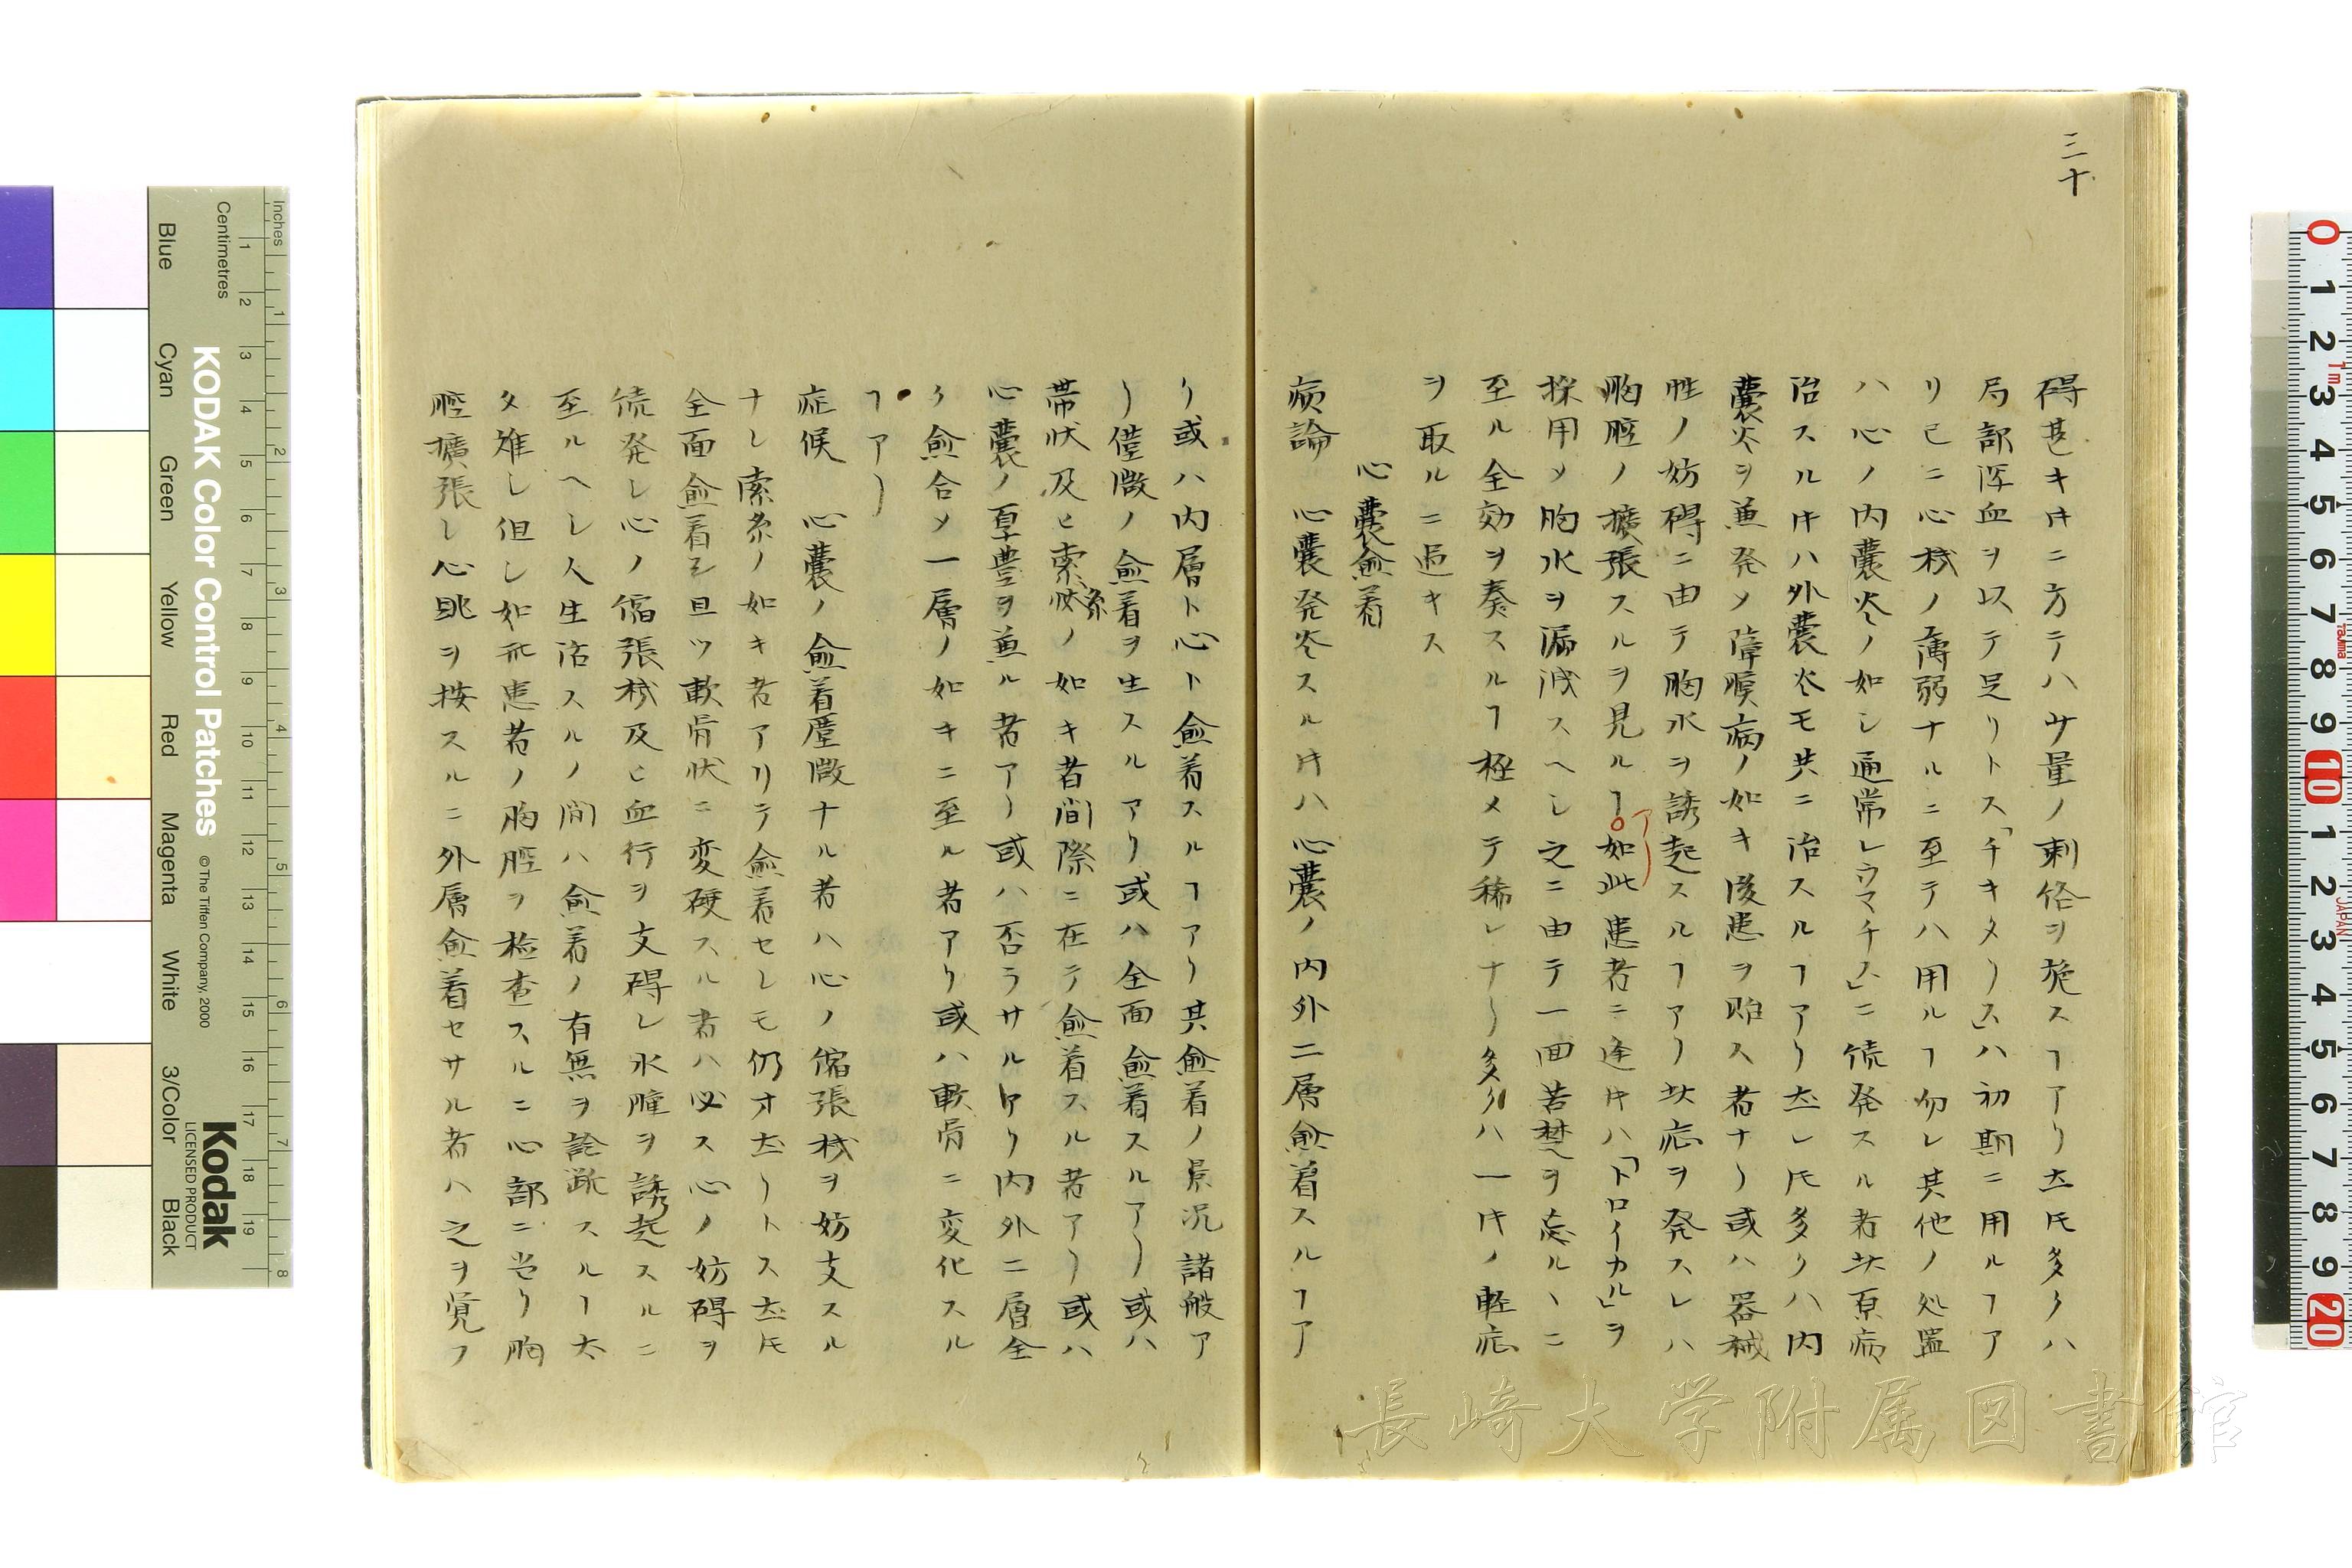 三十
碍甚キ𪜈ニ方テハ少量ノ刺絡ヲ施スヿアリ𪜈多クハ
局部瀉血ヲ以テ足リトス「チキタリス」ハ初期ニ用ルヿア
リ已ニ心機ノ薄弱ナルニ至テハ用ルヿ勿レ其他ノ処置
ハ心ノ内囊炎ノ如シ通常レウマチス」ニ続発スル者其原病
治スル𪜈ハ外囊炎モ共ニ治スルヿアリ然レ𪜈多クハ内
囊炎ヲ兼発メ障膜病ノ如キ後患ヲ貽ス者ナリ或ハ器械
性ノ妨碍ニ由テ胸水ヲ誘起スルヿアリ其症ヲ発スレハ
胸腔ノ擴張スルヲ見ルヿアリ如此患者ニ逢𪜈ハ「トロイカル」ヲ
採用メ胸水ヲ漏泄スヘシ之ニ由テ一回苦楚ヲ忘ルヽニ
至ル全効ヲ奏スルヿ極メテ稀レナリ多クハ一時ノ軽症
ヲ取ルニ過キス
心囊愈着
病論 心囊発炎スル𪜈ハ心囊ノ内外二層愈着スルヿア
リ或ハ内層ト心ト愈着スルヿアリ其愈着ノ景况諸般ア
リ僅微ノ愈着ヲ生スルアリ或ハ全面愈着スルアリ或ハ
帯状及ヒ索糸ノ如キ者間際ニ在テ愈着スル者アリ或ハ
心囊ノ厚豊ヲ兼ル者アリ或ハ否ラサルアリ内外二層全
ク愈合メ一層ノ如キニ至ル者アリ或ハ軟骨ニ変化スル
ヿアリ
症候 心囊ノ愈着僅微ナル者ハ心ノ縮張機ヲ妨支スル
ナシ索条ノ如キ者アリテ愈着セシモ仍才然リトス然𪜈
全面愈着シ且ツ軟骨状ニ変硬スル者ハ必ス心ノ妨碍ヲ
続発シ心ノ縮張機及ヒ血行ヲ支碍シ水腫ヲ誘起スルニ
至ルヘシ人生活スルノ間ハ愈着ノ有無ヲ詮蹤スルヿ太
タ難シ但シ如斯患者ノ胸腔ヲ檢査スルニ心部ニ当リ胸
腔擴張シ心眺ヲ按スルニ外層愈着セサル者ハ之ヲ覚フ
長崎大学附属図書館
KODAK Color Control Patches
© The Tiffen Company, 2000
Kodak
LICENSED PRODUCT
Inches
Centimetres
Blue
Cyan
Green
Yellow
Red
Magenta
White
3/Color
Black